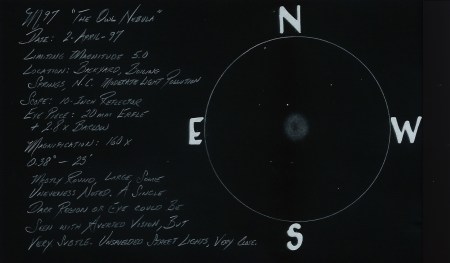 M97 "The Owl Nebula"
Date: 2-April-97
Limiting Magnitude 5.0
Location: Backyard, Boiling
Springs, N.C. Moderate Light Pollution
Scope: 10-Inch Reflector
Eye Piece: 20mm Erfle
+ 2.8x Barlow
Magnification: 160x
0.38° - 23'
Mostly Round, Large, Some
Uneveness Noted. A Single
Dark Region or Eye could Be
Seen with Averted Vision, But
Very Subtle. Unshielded Street Lights, Very
N
E
W
S